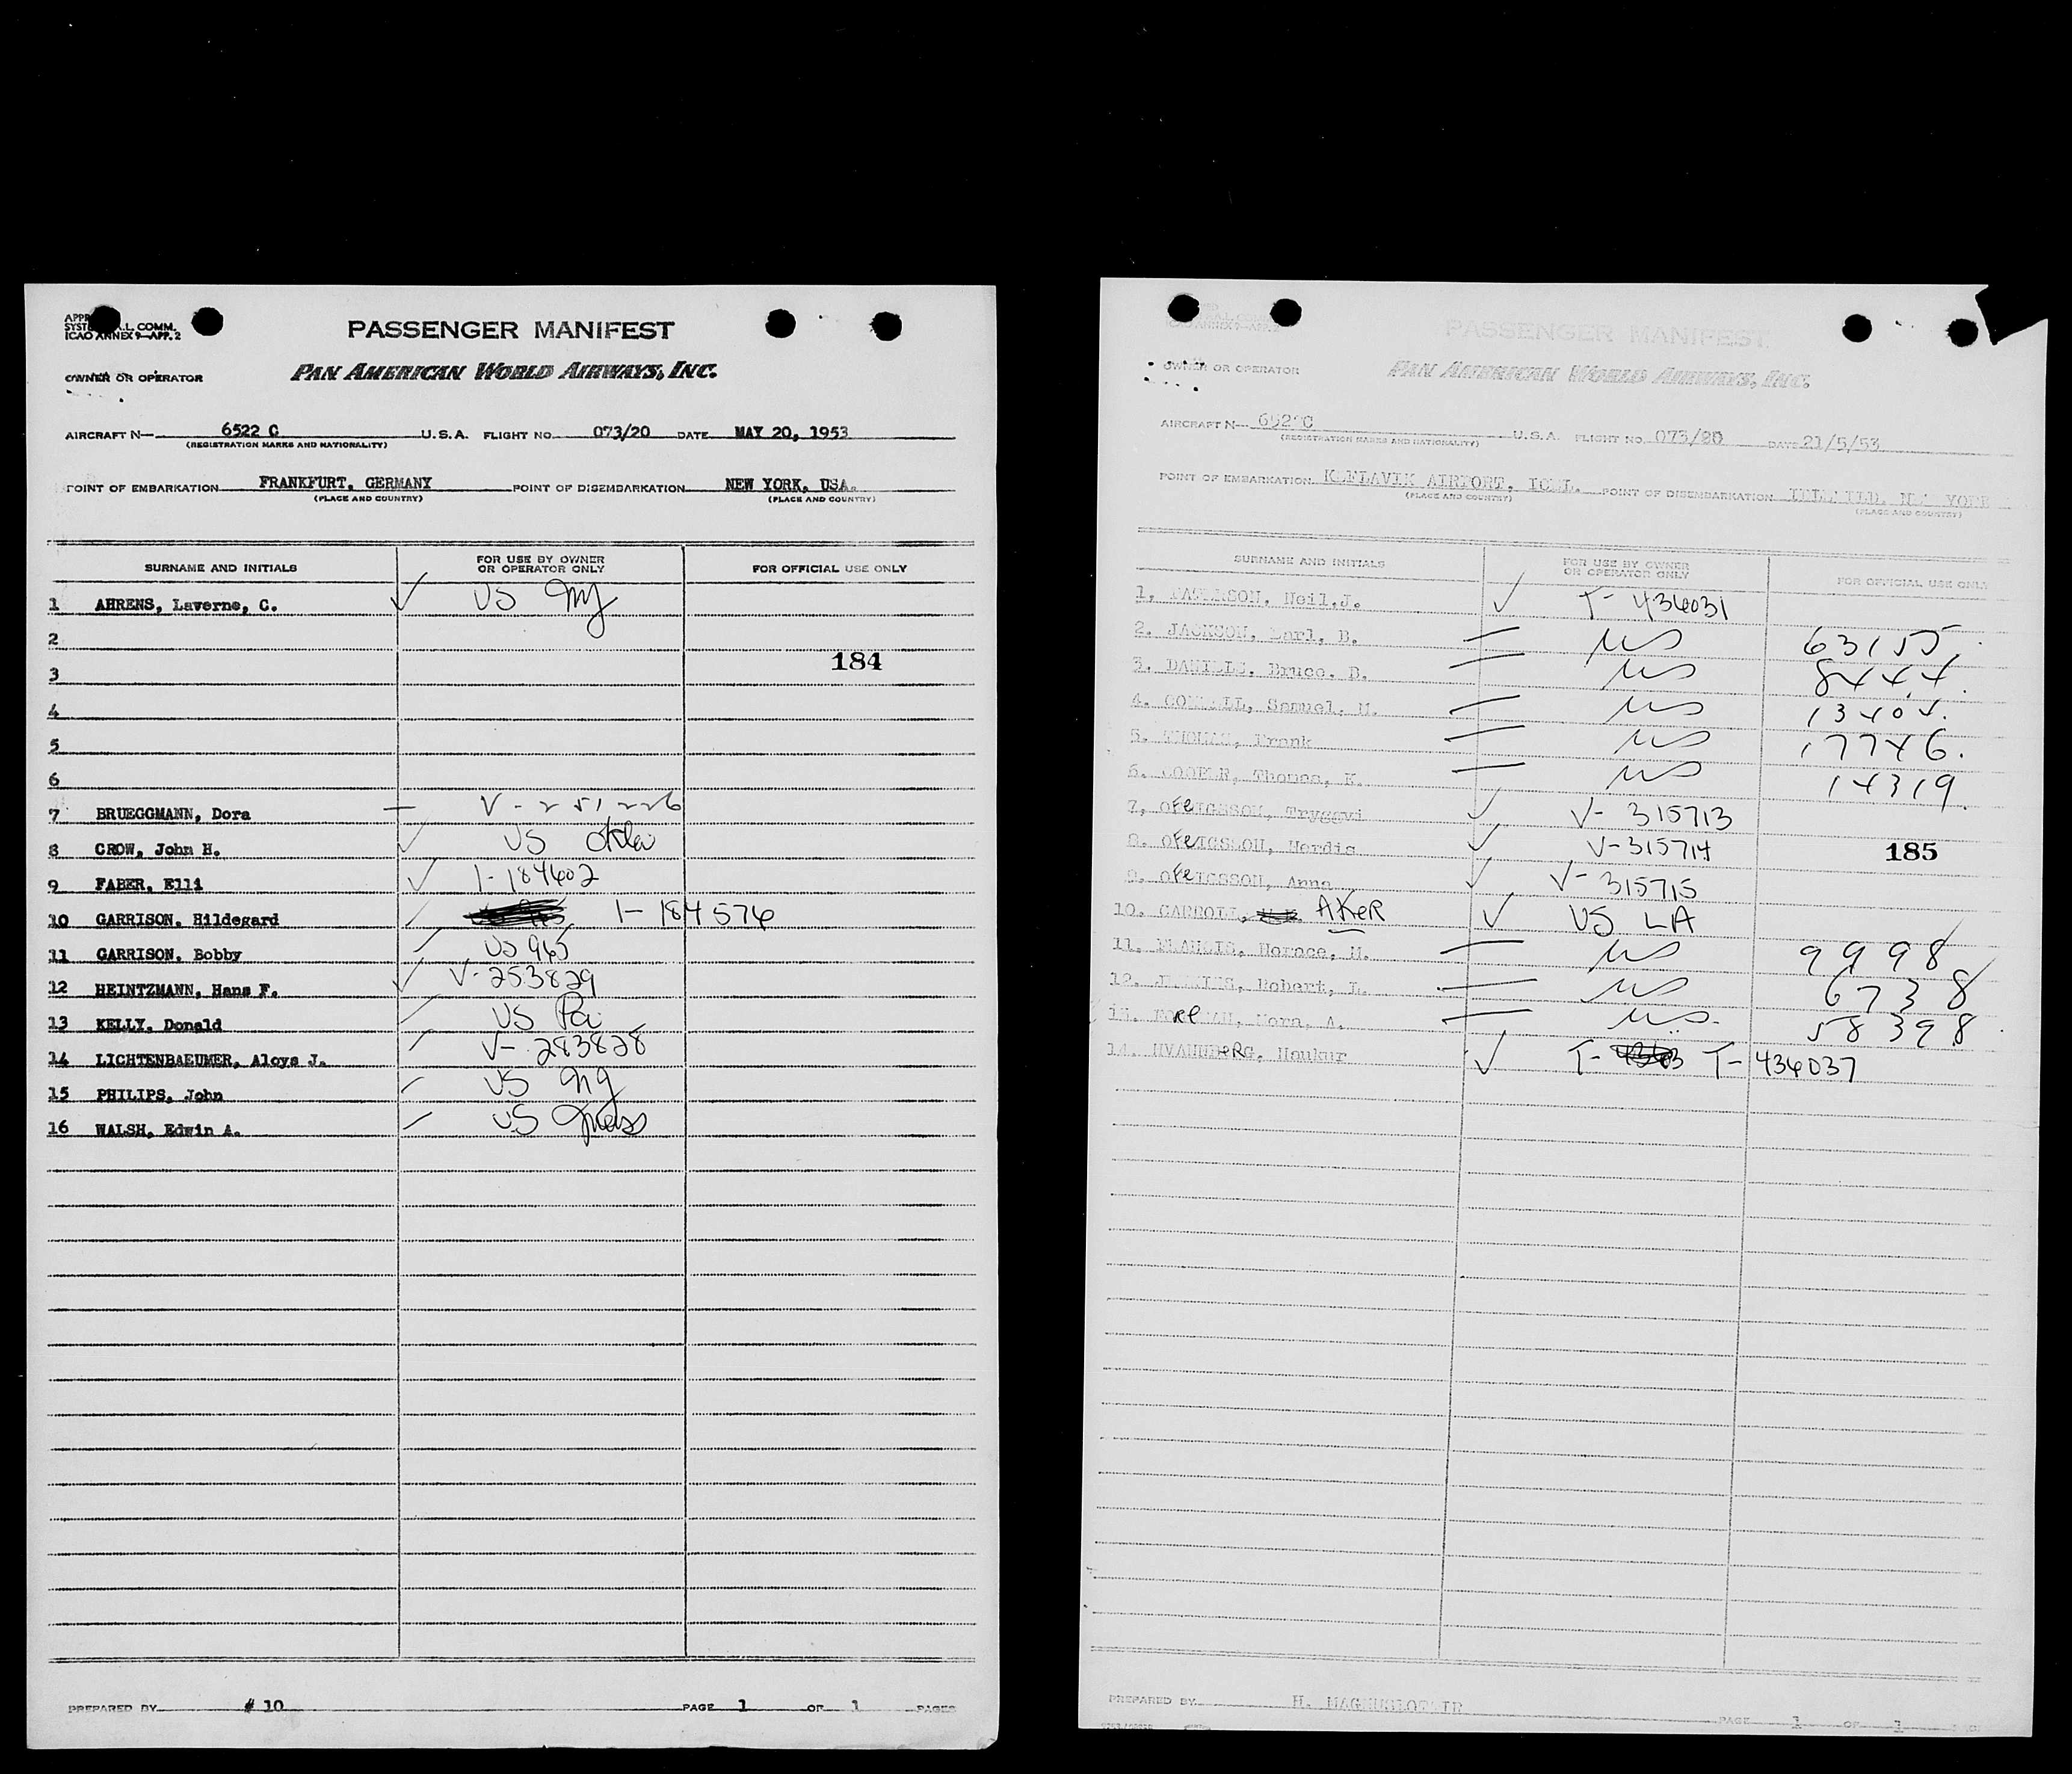 APPR
SYSTE A.L. COMM.
ICAO ANNEX 9—APP. 2
PASSENGER MANIFEST
OWNER OR OPERATOR PAN AMERICAN WORLD AIRWAYS, INC.
AIRCRAFT N— 6522 C U.S.A. FLIGHT NO. 073/20 DATE MAY 20, 1953
(REGISTRATION MARKS AND NATIONALITY)
POINT OF EMBARKATION FRANKFURT, GERMANY POINT OF DISEMBARKATION NEW YORK, USA.
(PLACE AND COUNTRY) (PLACE AND COUNTRY)
SURNAME AND INITIALS FOR USE BY OWNER OR OPERATOR ONLY FOR OFFICIAL USE ONLY
1 AHRENS, Laverne, C. ✓ US NY
2
184
3
4
5
6
7 BRUEGGMANN, Dora — V-251226
8 CROW, John H. ✓ US
9 FABER, Elli ✓ 1-184602
10 GARRISON, Hildegard 1-184576
11 GARRISON, Bobby US 965
12 HEINTZMANN, Hans F. ✓ V-253829
13 KELLY, Donald US Pa
14 LICHTENBAEUMER, Aloys J. V-283828
15 PHILIPS, John US NY
16 WALSH, Edwin A. US Mass
PREPARED BY # 10 PAGE 1 OF 1 PAGES
ICAO ANNEX 9—APP. 2
PASSENGER MANIFEST
OWNER OR OPERATOR PAN AMERICAN WORLD AIRWAYS, INC.
AIRCRAFT N— 6522 C U.S.A. FLIGHT NO. 073/20 DATE 21/5/53
(REGISTRATION MARKS AND NATIONALITY)
POINT OF EMBARKATION KEFLAVIK AIRPORT, ICEL. POINT OF DISEMBARKATION IDLEWILD, NEW YORK
(PLACE AND COUNTRY) (PLACE AND COUNTRY)
SURNAME AND INITIALS FOR USE BY OWNER OR OPERATOR ONLY FOR OFFICIAL USE ONLY
1. Neil.J. ✓ T-436031
2. JACKSON, Earl, B. — US 63155
3. DANIELS, Bruce, B. — US 8444.
4. Samuel, M. — US 13404.
5. THOMAS, Frank — US 17746.
6. COOPER, Thomas, K. — US 14319.
7. OFEIGSSON, Tryggvi ✓ V-315713
8. OFEIGSSON, Herdis ✓ V-315714
185
9. OFEIGSSON, Anna ✓ V-315715
10. CARROLL, AKER ✓ US LA
11. FRANCIS, Horace, M. — US 9998
12. Robert, L. — US 6738
13. Nora, A. — US. 58398
14. HVANNBERG, Haukur ✓ T- T-436037
PREPARED BY H. PAGE 1 OF 1